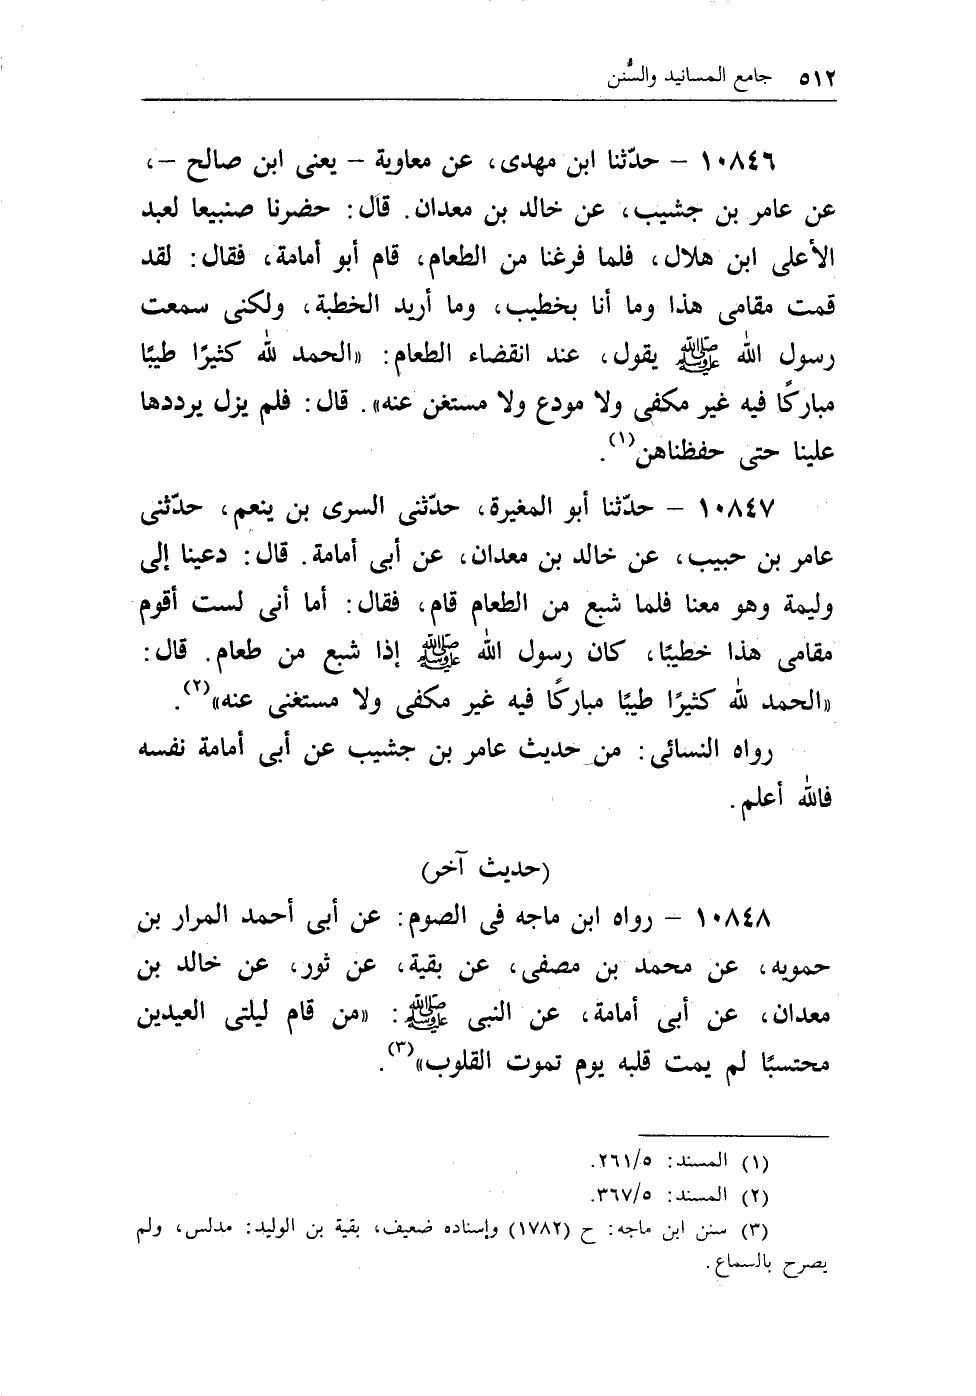 ٥١٢ جامع المسانيد والسُّنن
١٠٨٤٦ – حدّثنا ابن مهدى، عن معاوية – يعنى ابن صالح –،
عن عامر بن جشيب، عن خالد بن معدان. قال: حضرنا صنبيعا لعبد
الأعلى ابن هلال، فلما فرغنا من الطعام، قام أبو أمامة، فقال: لقد
قمت مقامى هذا وما أنا بخطيب، وما أريد الخطبة، ولكنى سمعت
رسول الله ﷺ يقول، عند انقضاء الطعام: «الحمد لله كثيرًا طيبًا
مباركًا فيه غير مكفى ولا مودع ولا مستغن عنه». قال: فلم يزل يرددها
علينا حتى حفظناهن(١).
١٠٨٤٧ – حدّثنا أبو المغيرة، حدّثنى السرى بن ينعم، حدّثنى
عامر بن حبيب، عن خالد بن معدان، عن أبى أمامة. قال: دعينا إلى
وليمة وهو معنا فلما شبع من الطعام قام، فقال: أما أنى لست أقوم
مقامى هذا خطيبًا، كان رسول الله ﷺ إذا شبع من طعام. قال:
«الحمد لله كثيرًا طيبًا مباركًا فيه غير مكفى ولا مستغنى عنه»(٢).
رواه النسائى: من حديث عامر بن جشيب عن أبى أمامة نفسه
فالله أعلم.
(حديث آخر)
١٠٨٤٨ – رواه ابن ماجه فى الصوم: عن أبى أحمد المرار بن
حمويه، عن محمد بن مصفى، عن بقية، عن ثور، عن خالد بن
معدان، عن أبى أمامة، عن النبى ﷺ: «من قام ليلتى العيدين
محتسبًا لم يمت قلبه يوم تموت القلوب»(٣).
(١) المسند: ٢٦١/٥.
(٢) المسند: ٣٦٧/٥.
(٣) سنن ابن ماجه: ح (١٧٨٢) وإسناده ضعيف، بقية بن الوليد: مدلس، ولم
يصرح بالسماع.